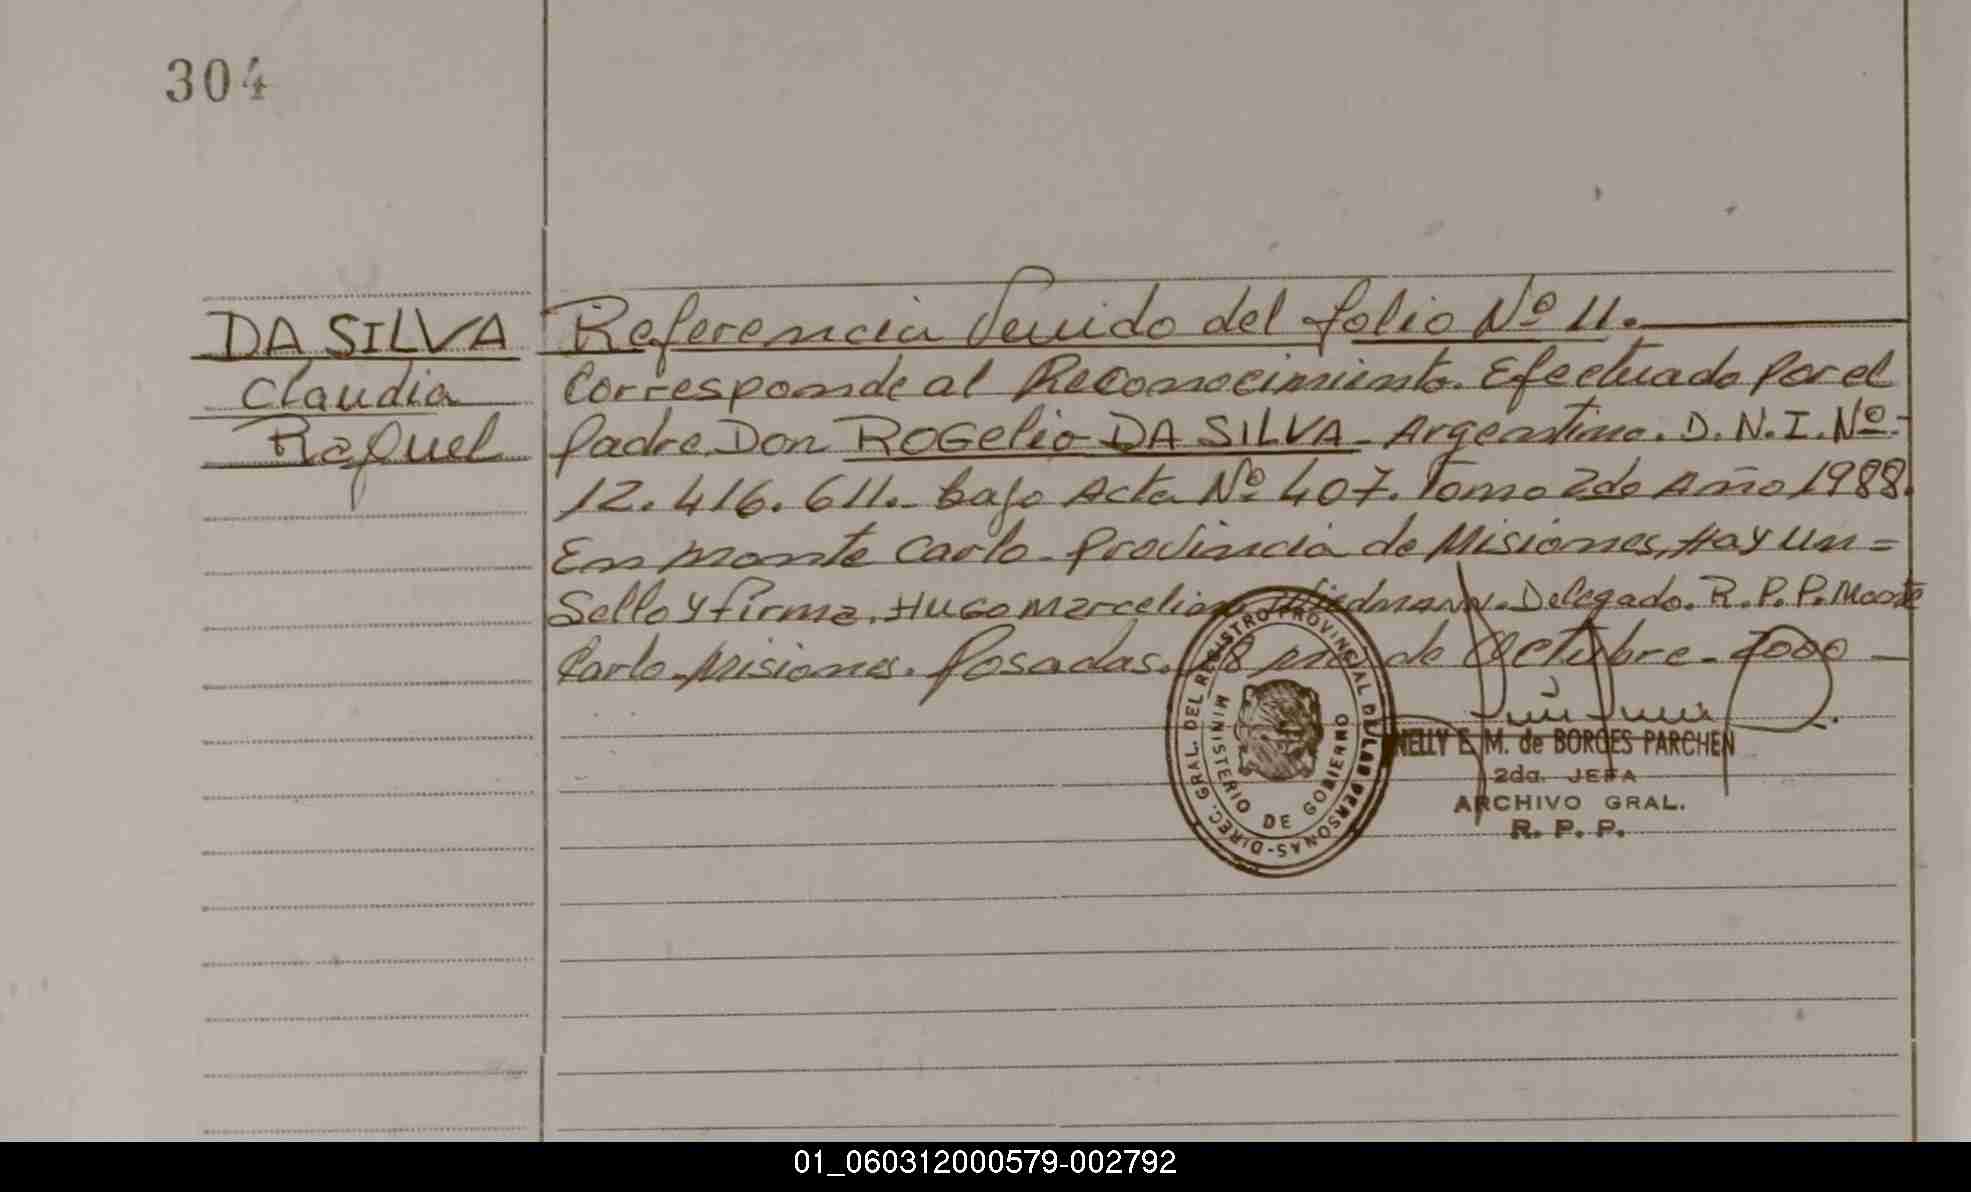 304
DA SILVA
Claudia
Raquel
Referencia Venido del folio Nº 11.
Corresponde al Reconocimiento. Efectuado por el
padre. Don ROGELIO DA SILVA - Argentino. D.N.I. Nº-
12.416.611.- bajo Acta Nº 407. Tomo 2do Año 1988.
En Monte Carlo - Provincia de Misiones, Hay Un=
Sello y firma. HUGO Marcelino. Delegado. R.P.P. Monte
Carlo - Misiones. Posadas. 18 de Octubre - 2000 -
DIREC. GRAL. DEL REGISTRO PROVINCIAL DE LAS PERSONAS-
MINISTERIO DE GOBIERNO
NELLY E. M. de BORGES PARCHEN
2da. JEFA
ARCHIVO GRAL.
R. P. P.
01_060312000579-002792